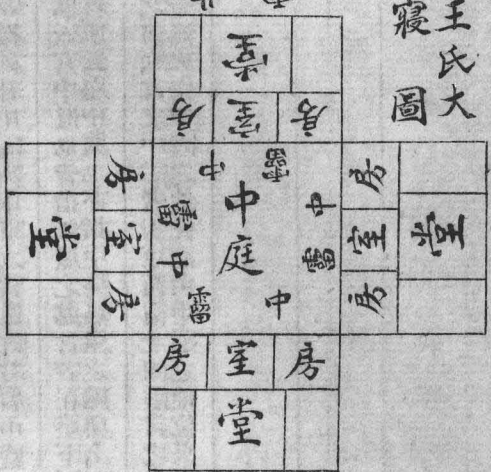 王氏大
寢圖
堂
房 室 房
堂
房 室 房
中霤
中霤
中庭
中霤
中霤
房 室 房
堂
房 室 房
堂